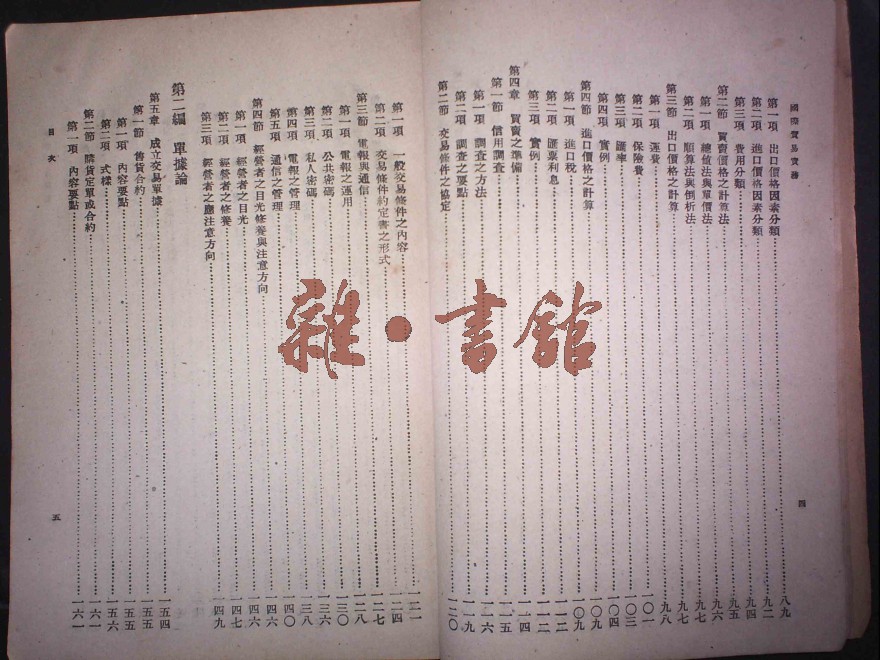 國際貿易實務
第一項 出口價格因素分類……八九
第二項 進口價格因素分類……九二
第三項 費用分類……九四
第二節 買賣價格之計算法……九五
第一項 總值法與單價法……九六
第二項 順算法與倒析法……九七
第三節 出口價格之計算……九七
第一項 運費……九八
第二項 保險費……一〇一
第三項 匯率……一〇三
第四項 實例……一〇四
第四節 進口價格之計算……一〇九
第一項 進口稅……一〇九
第二項 匯票利息……一一二
第三項 實例……一一二
第四章 買賣之準備……一一四
第一節 信用調查……一一五
第一項 調查之方法……一一六
第二項 調查之要點……一一九
第二節 交易條件之協定……一二〇
四
第一項 一般交易條件之內容……一二一
第二項 交易條件約定書之形式……一二四
第三節 電報與通信……一二七
第一項 電報之運用……一二八
第二項 公共密碼……一三〇
第三項 私人密碼……一三六
第四項 電報之管理……一三八
第五項 通信之管理……一四〇
第四節 經營者之目光修養與注意方向……一四六
第一項 經營者之目光……一四六
第二項 經營者之修養……一四七
第三項 經營者之應注意方向……一四九
第二編 單據論
第五章 成立交易單據……一五四
第一節 售貨合約……一五五
第一項 內容要點……一五五
第二項 式樣……一五六
第二節 購貨定單或合約……一六一
第一項 內容要點……一六一
目次
五
雜·書館